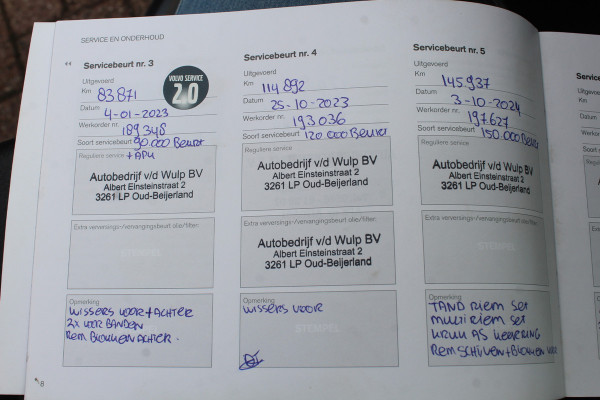 SERVICE EN ONDERHOUD
Servicebeurt nr. 3
Uitgevoerd
Km 83871
VOLVO SERVICE
2.0
Datum 4-01-2023
Werkorder nr. 189348
Soort servicebeurt 90.000 Beurt
+ APK
Reguliere service
Autobedrijf v/d Wulp BV
Albert Einsteinstraat 2
3261 LP Oud-Beijerland
Extra verversings-/vervangingsbeurt olie/filter:
STEMPEL
Opmerking
WISSERS VOOR + ACHTER
2x VOOR BANDEN
REM BLOKKEN ACHTER.
8
Servicebeurt nr. 4
Uitgevoerd
Km 114892
Datum 25-10-2023
Werkorder nr. 193036
Soort servicebeurt 120.000 Beurt
Reguliere service
Autobedrijf v/d Wulp BV
Albert Einsteinstraat 2
3261 LP Oud-Beijerland
Autobedrijf v/d Wulp BV
Albert Einsteinstraat 2
3261 LP Oud-Beijerland
Opmerking
WISSERS VOOR
STEMPEL
Servicebeurt nr. 5
Uitgevoerd
Km 145.937
Datum 3-10-2024
Werkorder nr. 197627
Soort servicebeurt 150.000 Beurt
Reguliere service
Autobedrijf v/d Wulp BV
Albert Einsteinstraat 2
3261 LP Oud-Beijerland
Extra verversings-/vervangingsbeurt olie/filter:
STEMPEL
Opmerking
TAND RIEM SET
MULTI RIEM SET
KRUK AS KEERRING
REM SCHIJVEN + BLOKKEN